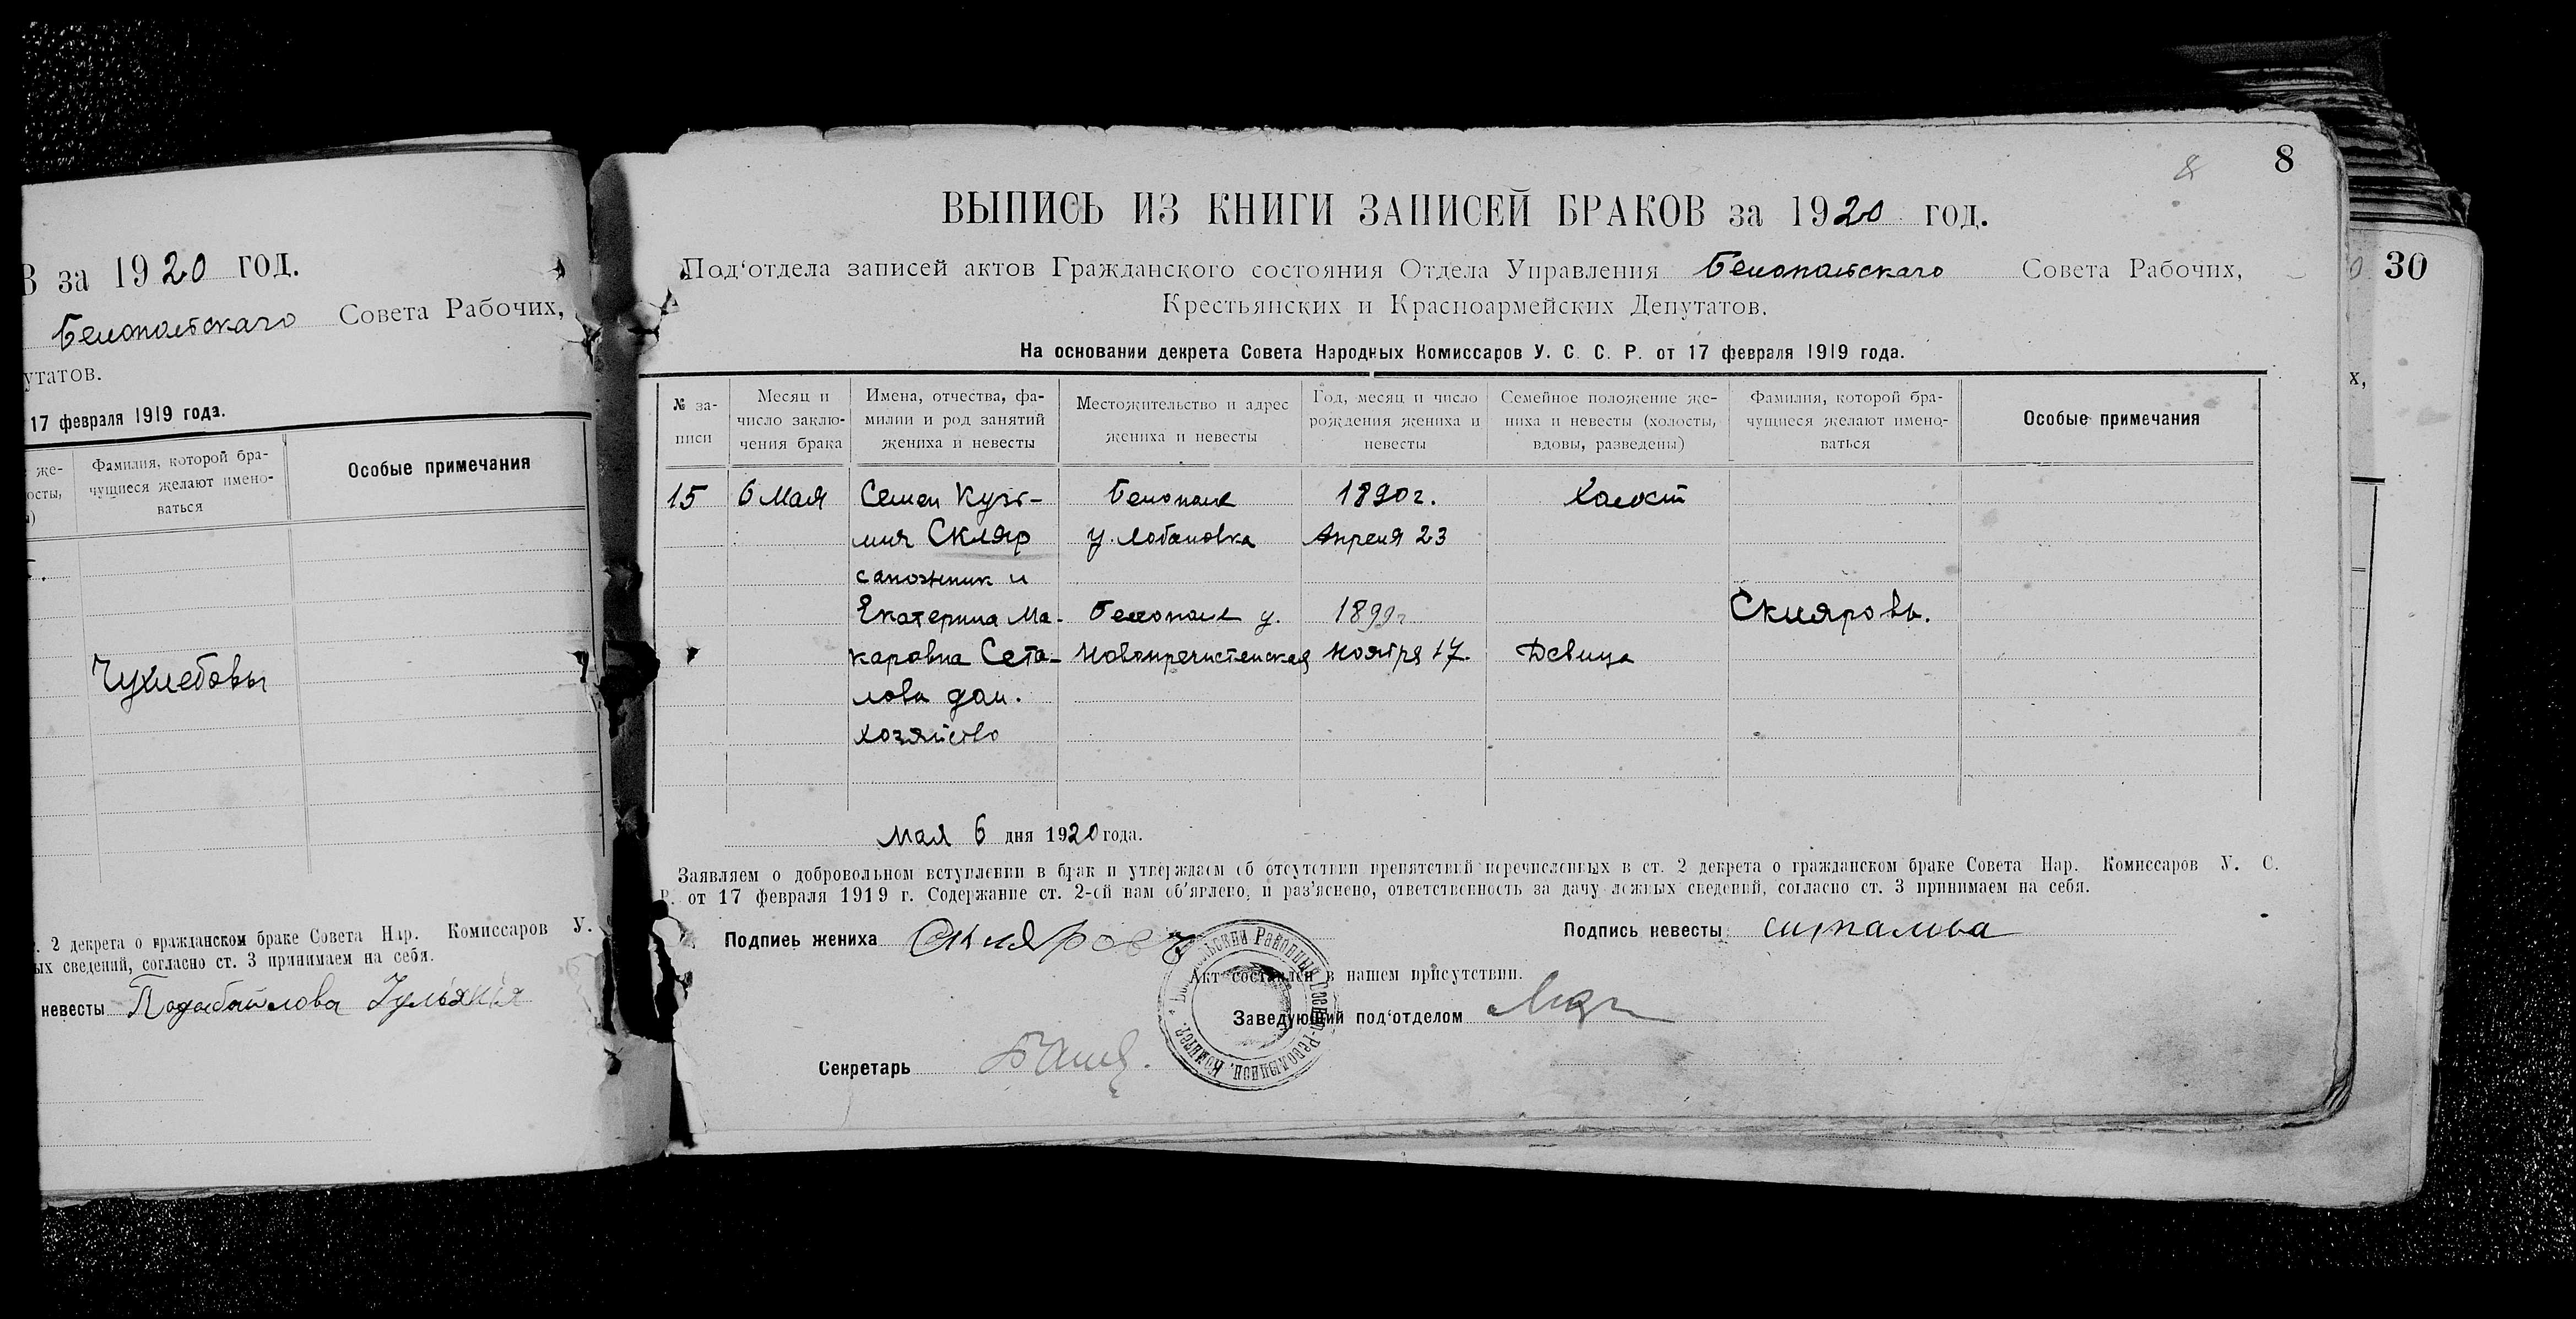 В за 1920 год.
Белопольскаго Совета Рабочих,
утатов.
17 февраля 1919 года.
же-
ости,
Фамилия, которой бра-
чущиеся желают имено-
ваться
Особые примечания
Чухлебовы
. 2 декрета о гражданском браке Совета Нар. Комиссаров У.
ых сведений, согласно ст. 3 принимаем на себя.
невесты
8
8
ВЫПИСЬ ИЗ КНИГИ ЗАПИСЕЙ БРАКОВ за 1920 год.
Под‘отдела записей актов Гражданского состояния Отдела Управления Белопольскаго Совета Рабочих,
Крестьянских и Красноармейских Депутатов.
На основании декрета Совета Народных Комиссаров У. С. С. Р. от 17 февраля 1919 года.
№ за-
писи
Месяц и
число заклю-
чения брака
Имена, отчества, фа-
милии и род занятий
жениха и невесты
Местожительство и адрес
жениха и невесты
Год, месяц и число
рождения жениха и
невесты
Семейное положение же-
ниха и невесты (холосты,
вдовы, разведены)
Фамилия, которой бра-
чущиеся желают имено-
ваться
Особые примечания
15 6 Мая Семен Кузь- Белополе 1890 г. Холост
мич Скляр у. Лобановка Апреля 23
сапожник и
Екатерина Ма- Белополе у. 1899 г Скляровы.
каровна Сета- Новопречистенская Ноября 17 Девица
лова дом.
хозяйство
Мая 6 дня 1920 года.
Заявляем о добровольном вступлении в брак и утверждаем об отсутствии препятствий перечисленных в ст. 2 декрета о гражданском браке Совета Нар. Комиссаров У. С.
Р. от 17 февраля 1919 г. Содержание ст. 2-ой нам об‘явлено, и раз‘яснено, ответственность за дачу ложных сведений, согласно ст. 3 принимаем на себя.
Подпись жениха Скляров Подпись невесты ситалова
Акт составлен в нашем присутствии.
Заведующий под‘отделом
Секретарь
30
х,